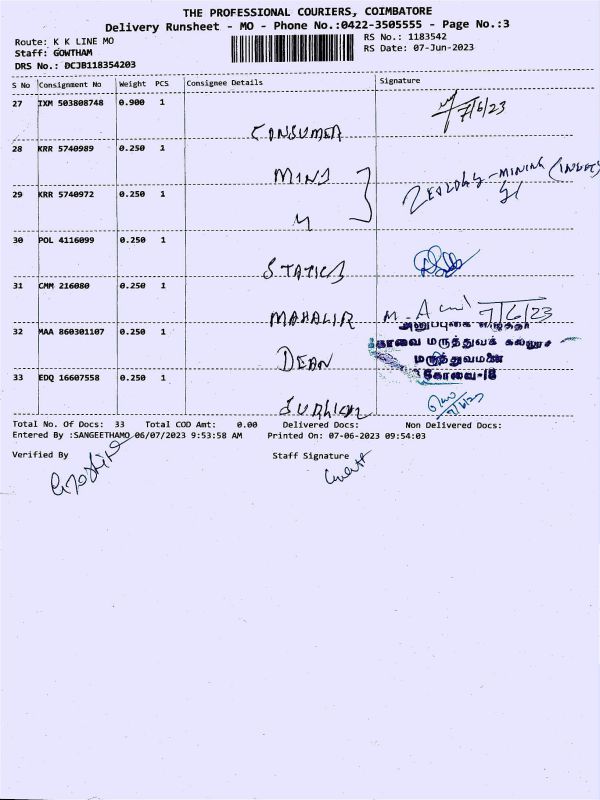 THE PROFESSIONAL COURIERS, COIMBATORE
Delivery Runsheet - MO - Phone No.:0422-3505555 - Page No.:3
Route: K K LINE MO
RS No.: 1183542
Staff: GOWTHAM
RS Date: 07-Jun-2023
DRS No.: DCJB118354203
S No Consignment No Weight PCS Consignee Details Signature
27 IXM 503808748 0.900 1
7/6/23
CONSUMER
28 KRR 5740989 0.250 1
MINS
MINING
29 KRR 5740972 0.250 1
30 POL 4116099 0.250 1
STATICS
31 CMM 216080 0.250 1
MAHALIR M.
7/6/23
32 MAA 860301107 0.250 1
DEAN
கோவை மருத்துவக்
மருத்துவமனை
கோவை-18
33 EDQ 16607558 0.250 1
Total No. Of Docs: 33 Total COD Amt: 0.00 Delivered Docs: Non Delivered Docs:
Entered By :SANGEETHAMO 06/07/2023 9:53:58 AM Printed On: 07-06-2023 09:54:03
Verified By Staff Signature